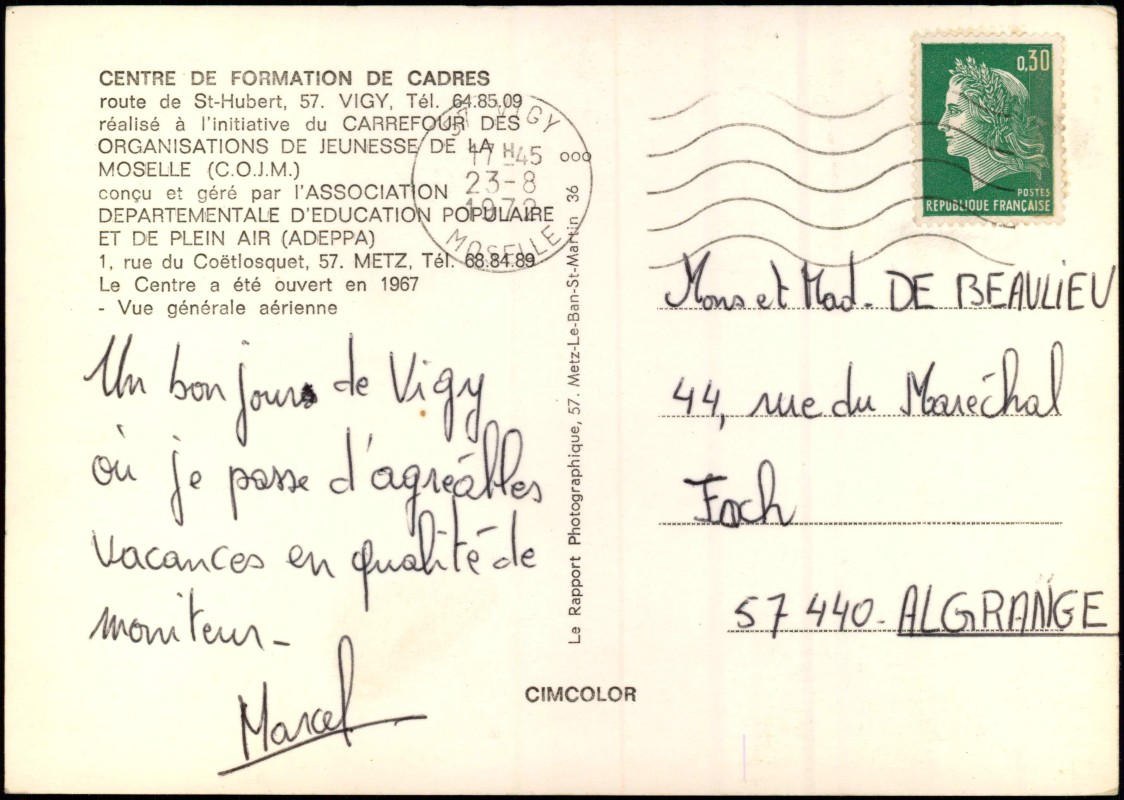 CENTRE DE FORMATION DE CADRES
route de St-Hubert, 57. VIGY, Tél. 64.85.09
réalisé à l'initiative du CARREFOUR DES
ORGANISATIONS DE JEUNESSE DE LA
MOSELLE (C.O.J.M.)
conçu et géré par l'ASSOCIATION
DEPARTEMENTALE D'EDUCATION POPULAIRE
ET DE PLEIN AIR (ADEPPA)
1, rue du Coëtlosquet, 57. METZ, Tél. 68.84.89
Le Centre a été ouvert en 1967
- Vue générale aérienne
57 VIGY
17 H 45
23-8
1972
MOSELLE
0,30
POSTES
REPUBLIQUE FRANÇAISE
Un bon jour de Vigy
où je passe d'agréables
vacances en qualité de
moniteur-
Marcel
Le Rapport Photographique, 57. Metz-Le-Ban-St-Martin 36
CIMCOLOR
Mons et Mad. DE BEAULIEU
44, rue du Maréchal
Foch
57 440 - ALGRANGE